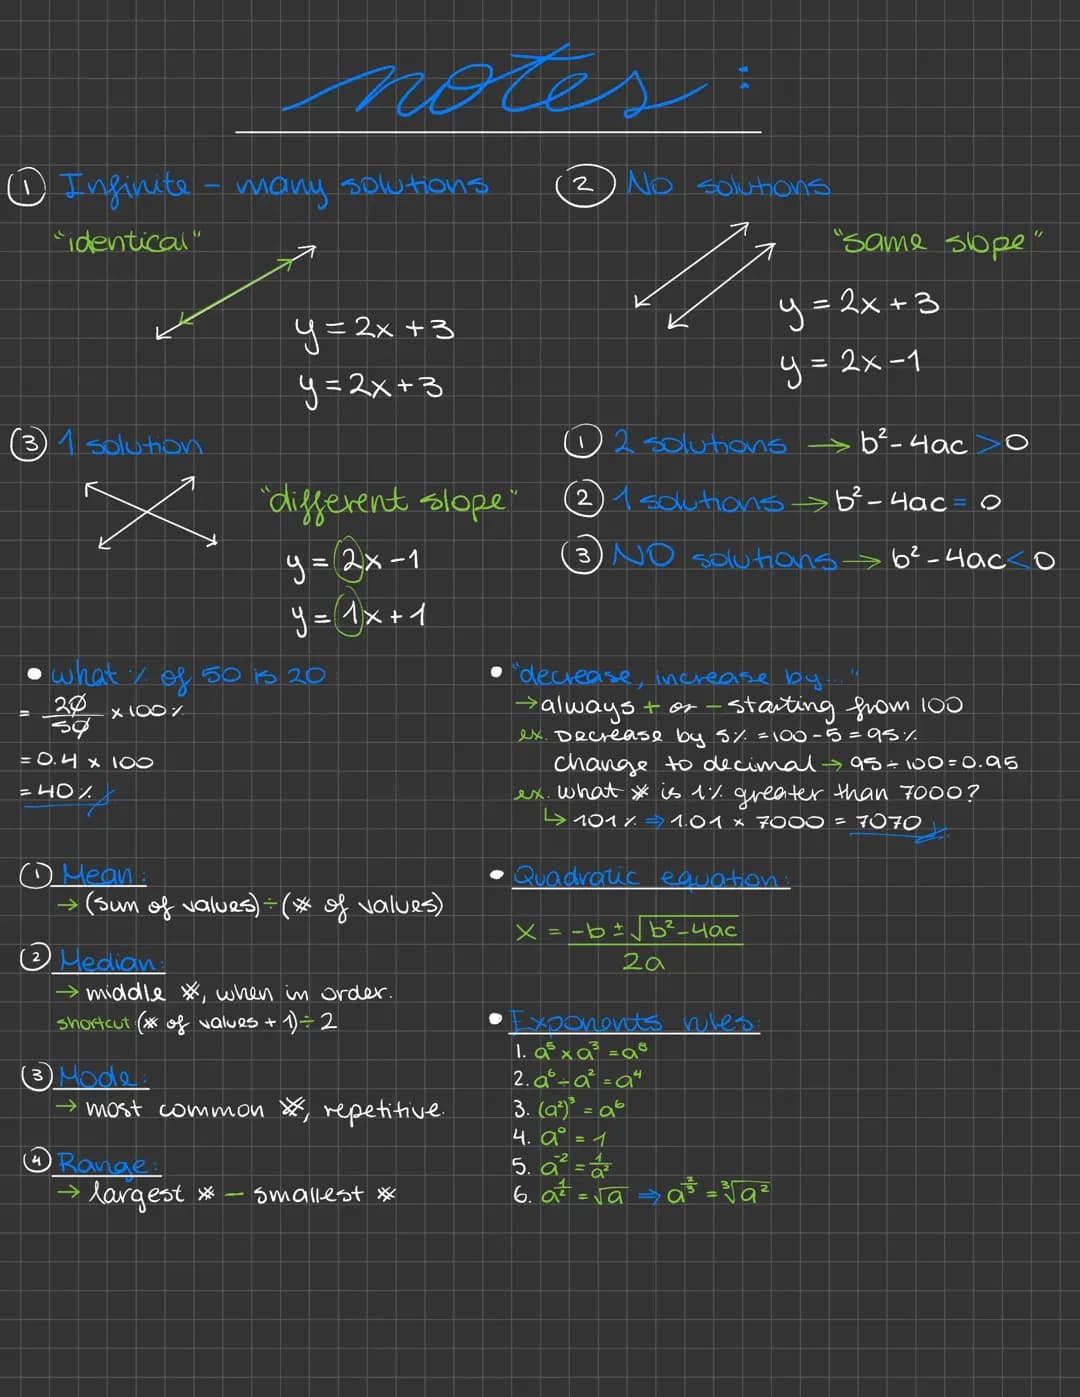 notes:
① Infinite - many solutions
"identical"
y = 2x + 3
y = 2x + 3
② No solutions
"same slope"
y = 2x + 3
y = 2x - 1
③ 1 solution
"different slope"
y = 2x - 1
y = 1x + 1
① 2 solutions → b² - 4ac > 0
② 1 solutions → b² - 4ac = 0
③ NO solutions → b² - 4ac < 0
• what % of 50 is 20
= 20/50 × 100%
= 0.4 × 100
= 40%
• "decrease, increase by..."
→ always + or - starting from 100
ex. Decrease by 5% = 100 - 5 = 95%
change to decimal → 95 ÷ 100 = 0.95
ex. what # is 1% greater than 7000?
↳ 101% ⇒ 1.01 × 7000 = 7070
① Mean:
→ (sum of values) ÷ (# of values)
② Median:
→ middle #, when in order.
shortcut: (# of values + 1) ÷ 2
③ Mode:
→ most common #, repetitive.
④ Range:
→ largest # - smallest #
• Quadratic equation:
x = -b ± √b² - 4ac
2a
• Exponents rules:
1. a⁵ × a³ = a⁸
2. a⁶ ÷ a² = a⁴
3. (a²)³ = a⁶
4. a⁰ = 1
5. a⁻² = 1/a²
6. a^1/2 = √a ⇒ a^2/3 = ³√a²